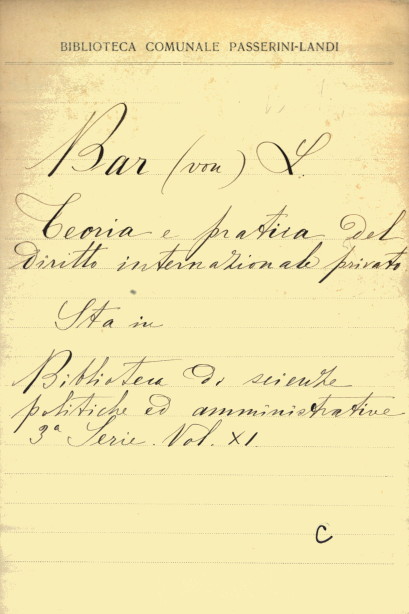 BIBLIOTECA COMUNALE PASSERINI-LANDI
Bar (von) L.
Teoria e pratica del
diritto internazionale privato
Sta in
Biblioteca di scienze
politiche ed amministrative
3ª Serie. Vol. XI.
C